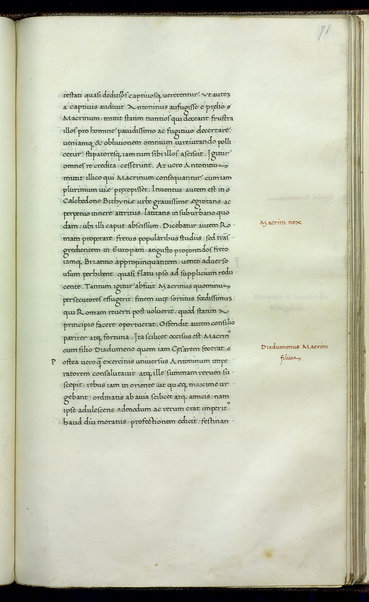 71
testati quasi deditiōs captiuosq; uererentur. Vt autē
a captiuis audiuit Antoninus aufugisse e prelio
Macrinum: mittit statim nuntios qui doceant frustra
illos pro homine pauidissimo ac fugitiuo decertare
ueniamq; & obliuionem omnium iureiurando polli
cetur stipatoresq; iam tum sibi illos asciscit. Igitur
omnes re credita cesserunt. At uero Antoninus
mittit illico qui Macrinum consequantur cum iam
plurimum uię precepisset. Inuentus autem est in
Calchedone Bithynię urbe grauissime egrotans ac
perpetuo itinere attritus, latitans in suburbano quo
dam: ubi illi caput abscissum. Dicebatur autem Ro
mam properare fretus popularibus studiis, sed traij
gredientem in Europam angusto propontidos freto
iamq; Bizantio appropinquantem, uento aduerso
usum perhibent, quasi flatu ipso ad supplicium redu
cente. Tantum igitur abfuit Macrinus quominus
persecutores effugerit, finem uitę sortitus fœdissimum:
qui Romam reuerti post uoluerit, quod statim a
principio facere oportuerat. Offendit autem consilio
pariter atq; fortuna. Ita scilicet occisus est Macrin
cum filio Diadumeno quem iam Cesarem fecerat.
P ostea uero q̃ exercitus uniuersus Antoninum impe
ratorem consalutauit atq; ille summam rerum su
scepit, rebus iam in oriente ut quęq; maxime ur
gebant ordinatis ab auia scilicet atq; amicis, nam
ipse adulescens admodum ac rerum erat imperit
haud diu moratus profectionem edicit festinan
Macrini nex
Diadumenus Macrini
filius